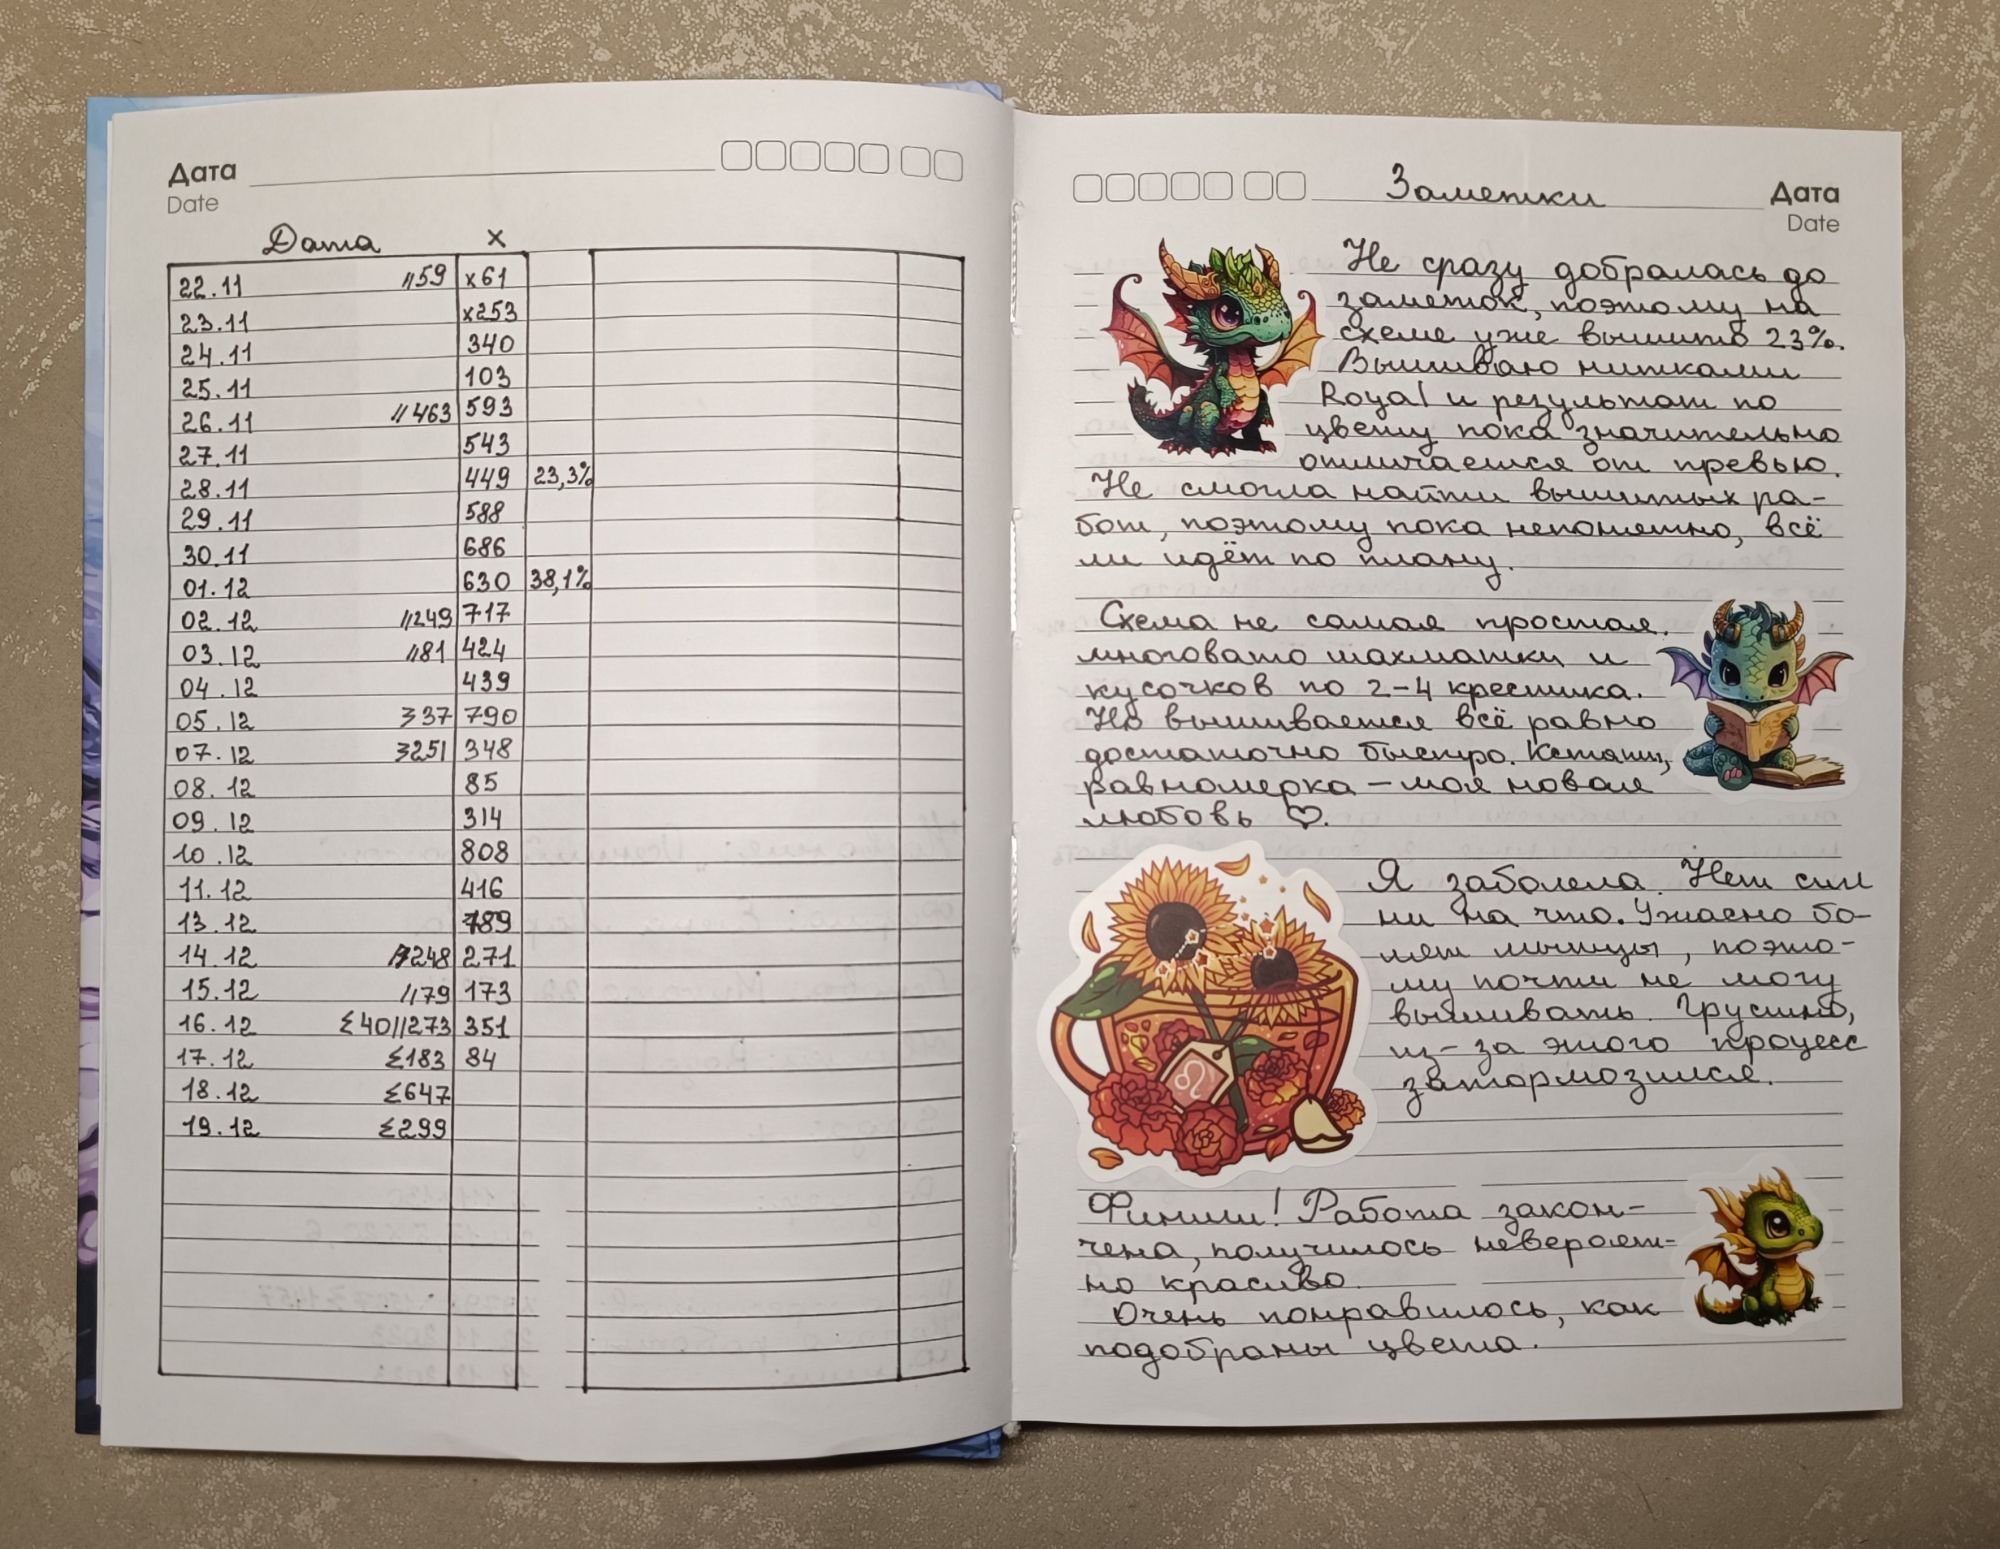 Дата
Date
Дата х
22.11 //59 x61
23.11 x253
24.11 340
25.11 103
26.11 //463 593
27.11 543
28.11 449 23,3%
29.11 588
30.11 686
01.12 630 38,1%
02.12 //249 717
03.12 //81 424
04.12 439
05.12 337 790
07.12 3251 348
08.12 85
09.12 314
10.12 808
11.12 416
13.12 789
14.12 248 271
15.12 //79 173
16.12 Σ40//273 351
17.12 Σ183 84
18.12 Σ647
19.12 Σ299
Заметки Дата
Date
Не сразу добралась до
заметок, поэтому на
схеме уже вышито 23%.
Вышиваю нитками
Royal и результат по
цвету пока значительно
отличается от превью.
Не смогла найти вышитых ра-
бот, поэтому пока непонятно, всё
ли идёт по плану.
Схема не самая простая.
многовато шахматки и
кусочков по 2-4 крестика.
Но вышивается всё равно
достаточно быстро. Кстати,
равномерка – моя новая
любовь ♡.
Я заболела. Нет сил
ни на что. Ужасно бо-
лят мышцы, поэто-
му почти не могу
вышивать. Грустно,
из-за этого процесс
затормозился.
Финиш! Работа закон-
чена, получилось невероят-
но красиво.
Очень понравилось, как
подобраны цвета.